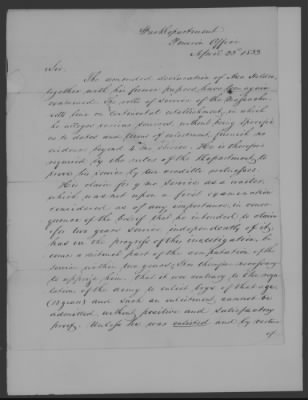 War Department
Pension Office
April 23d 1833
Sir,
The amended declaration of
together with his former papers, have been again
examined. The rolls of service of the Massachusetts
line on Continental establishment, in which
he alleges various services, without being specific
as to dates and terms of enlistment, furnish no
evidence beyond 4 mo service. He is therefore
required by the rules of the Department, to
prove his service by two credible witnesses.
His claim for 9 mo service as a waiter,
which was not upon a first examination
considered as of any importance, in conse-
quence of the belief that he intended to claim
for two years service, independently of it,
has in the progress of this investigation, be-
come a actual part of the computation of the
service within two years; it is therefore necessary
to apprize him that it was contrary to the regu-
lation of the army to enlist boys of that age,
and such an enlistment, cannot be
admitted, without positive and satisfactory
proof. Unless he was enlisted and by virtue
of